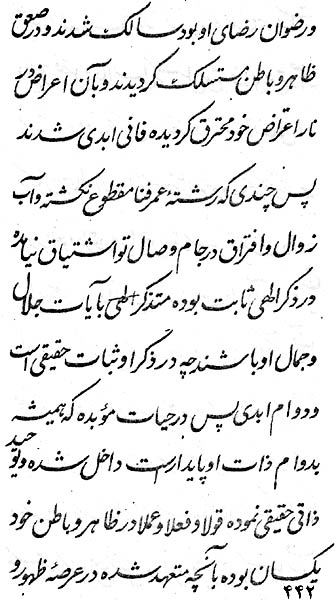 و رضوان رضای او بود سالک شدند و در صعق
ظاهر و باطن منسلک گردیدند و بآن اعراض در
نار اعتراض خود محترق گردیده فانی ابدی شدند
پس چندی که رشتهٔ عمر فنا مقطوع نکشته و آب
زوال و افتراق در جام وصال تو اشتیاق نیامده
در ذکر الهی ثابت بوده متذکر الهی بآیات جلال
و جمال او باشند چه در ذکر او ثبات حقیقی است
و دوام ابدی پس در حیات مؤبده که همیشه
بدوام ذات او پایدار است داخل شده و توحید
ذاتی حقیقی نموده قولا و فعلا و عملا در ظاهر و باطن خود
یکسان بوده بآنچه متعهد شده در عرصهٔ ظهور و
۴۴۲